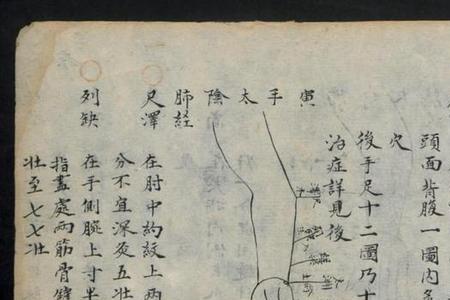 頭面背腹一圖内
穴
後手足十二圖乃十
治症詳見後
寅手太陰肺經
尺澤 在肘中約紋上兩
分不宜深灸五壯
列缺 在手側腕上寸半
指盡處兩筋骨罅
壯至七七壯